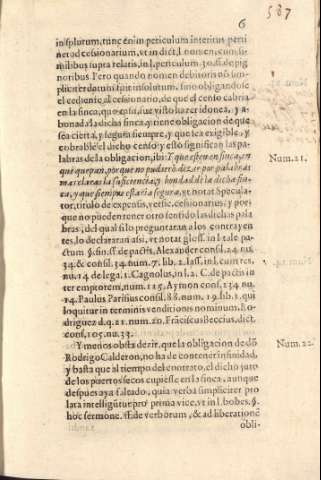 587
6
in solutum, tunc enim periculum interitus perti
net ad cessionarium, vt in dict. l. nomen, cum si-
milibus supra relatis, in l. periculum 30. ff. de pig
noribus. Pero quando nomen debitoris nō sim-
pliciter datum fuit in solutum, sino obligandose
el cediente al cessionario, de que el censo cabria
en la finca, quo casu, fue visto hazer idonea, y a-
bonada la dicha finca, q̃ tiene obligacion de que
sea cierta, y segura siempre, y que sea exigible, y
cobrable el dicho censo: y esto significan las pa-
labras de la obligacion, ibi: Y que estè en finca, en
que quepan, porque no pudierō dezir por palabras
mas claras la suficiencia, y bondad de la dicha fin-
ca, y que siempre estaria segura, vt notat Specula-
tor, titulo de expensis, versic. cessionarius: y porq̃
que no pueden tener otro sentido las dichas pala
bras, del qual si lo preguntaran a los contrayen
tes, lo declararan assi, vt notat gloss. in l. tale pa-
ctum §. fin. ff. de pactis, Alexander consil. 24. nu.
34. & consil. 34. num. 7. lib. 2. Iass. in l. cum res,
nu. 14. de lega. 1. Cagnolus, in l. 2. C. de pactis in
ter emptorem, num. 115. Aymon conf. 134. nu.
14. Paulus Parisius consil. 88. num. 19. lib. 1. qui
loquitur in terminis venditionis nominum. Ro-
driguez d. q. 21. num. 20. Frāciscus Beccius, dict.
cons. 105. nu. 33.
Num. 21.
Y menos obsta dezir, que la obligacion de dō
Rodrigo Calderon, no ha de contener infinidad,
y basta que al tiempo del contrato, el dicho juro
de los puertos secos cupiesse en la finca, aunque
despues aya faltado, quia verba simpliciter pro
lata intelligūtur pro prima vice, vt in l. boues, §.
hoc sermone, ff. de verborum, & ad liberationē
Num. 22.
obli-